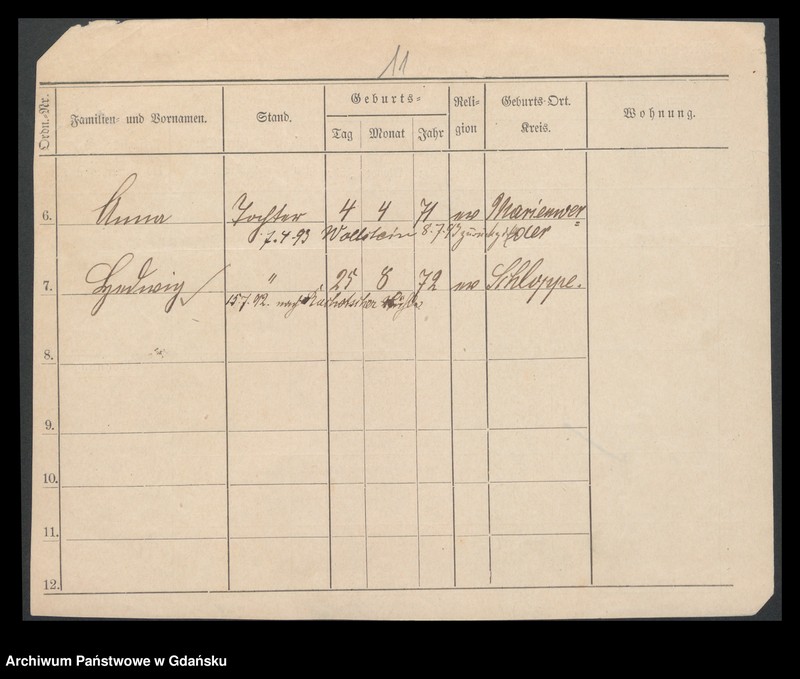 11
Ordn.-Nr. Familien- und Vornamen. Stand. Geburts- Tag Monat Jahr Reli- gion Geburts-Ort. Kreis. Wohnung.
6. Anna Tochter 4 4 71 ev Marienwer=
7.4.93 Wollstein 8.7.93 zurück der
7. Hedwig " 25 8 72 ev Schloppe.
15.7.92. nach
8.
9.
10.
11.
12.
Archiwum Państwowe w Gdańsku